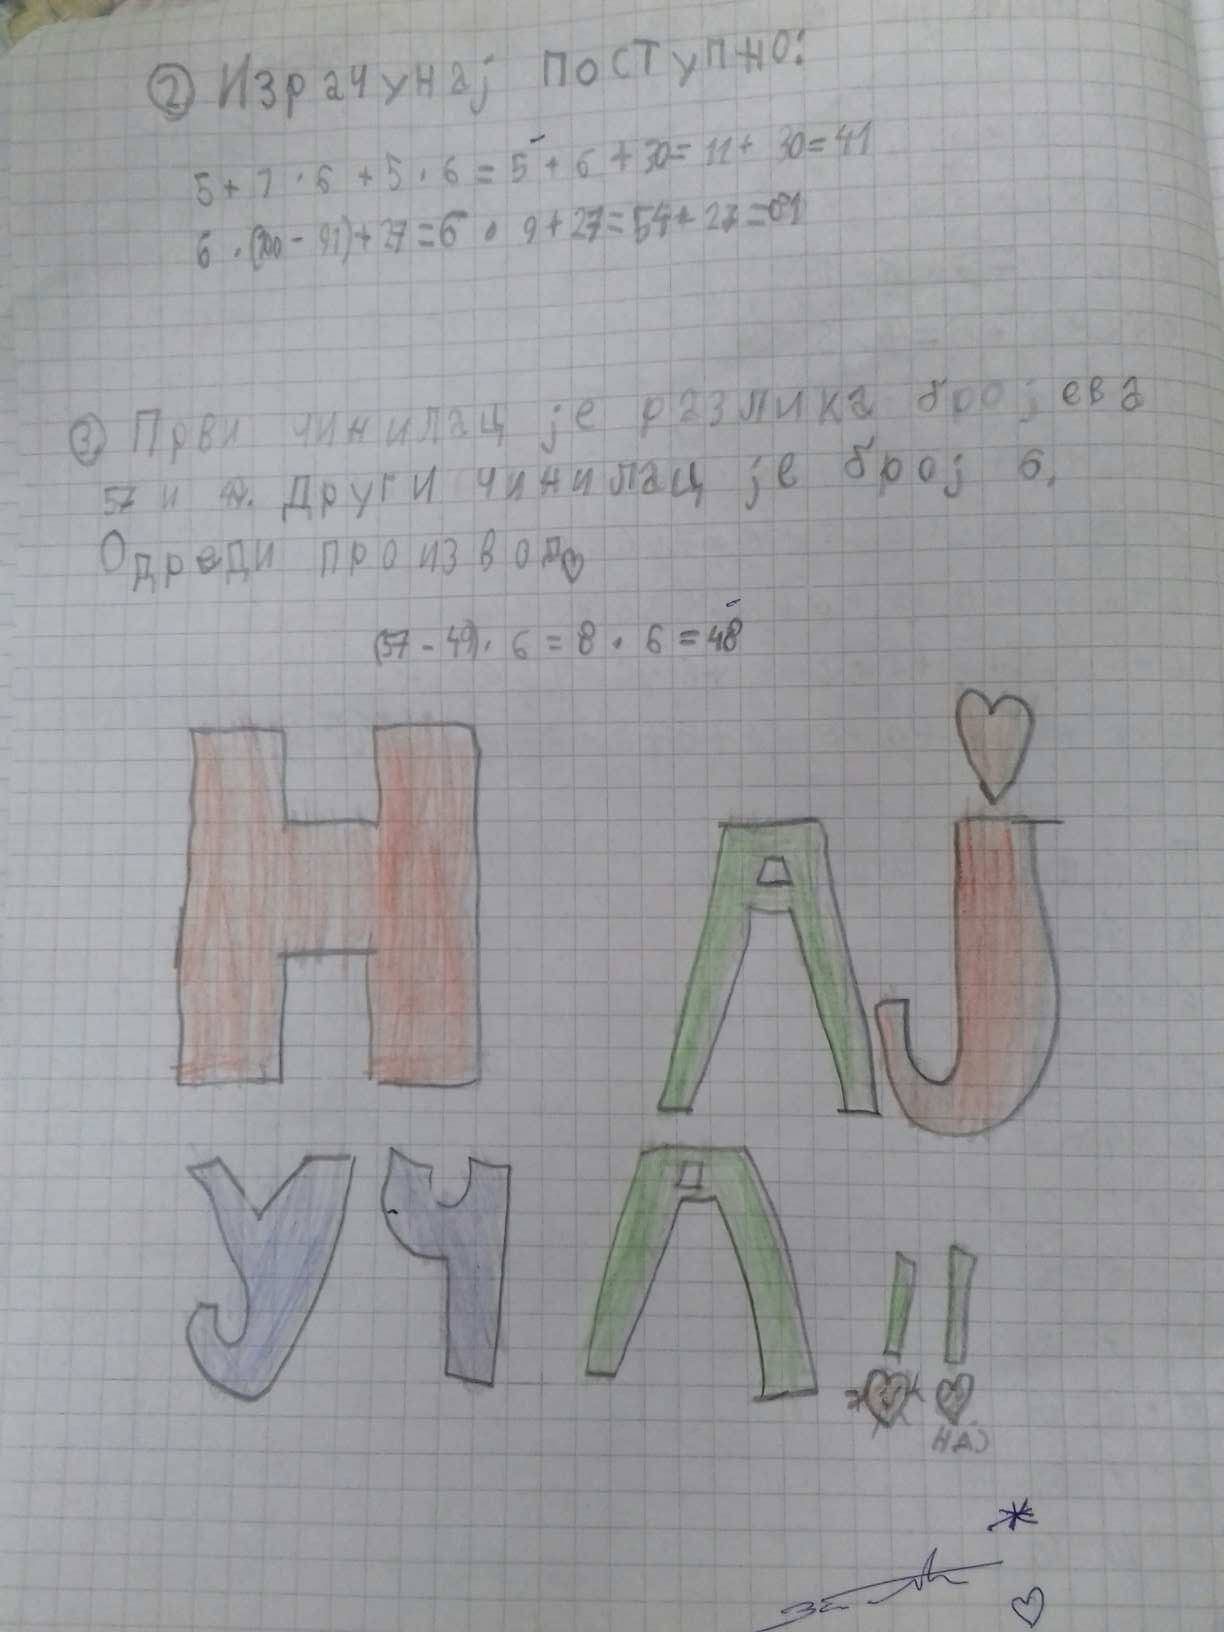 ② Израчунај поступно:
5 + 1 · 6 + 5 · 6 = 5 + 6 + 30 = 11 + 30 = 41
6 · (100 - 91) + 27 = 6 · 9 + 27 = 54 + 27 = 81
③ Први чинилац је разлика бројева
57 и 49. Други чинилац је број 6.
Одреди производ
(57 - 49) · 6 = 8 · 6 = 48
НАЈ
УЧА!!
НАЈ